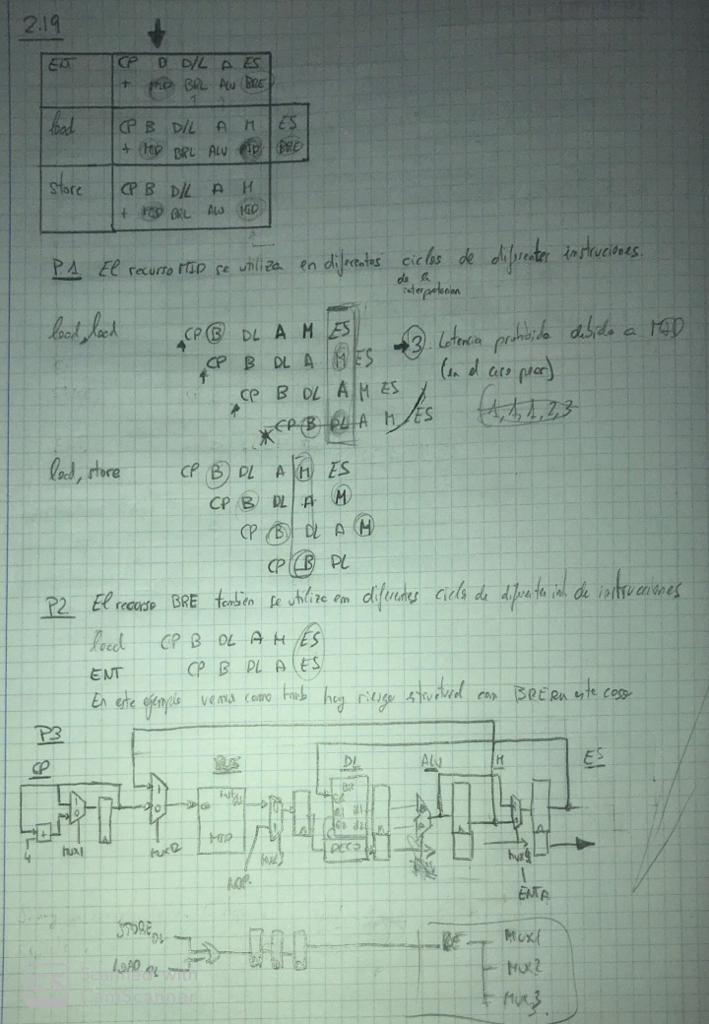 2.19
ENT CP B D/L A ES
+ MID BRL ALU BRE
load CP B D/L A M ES
+ MID BRL ALU MID BRE
store CP B D/L A M
+ MID BRL ALU MID
P.1 El recurso MID se utiliza en diferentes ciclos de diferentes instruciones.
de la interpretacion
load, load CP B DL A M ES → 3. Latencia prohibida debido a MID
CP B DL A M ES (en el caso peor)
CP B DL A M ES
* CP B DL A M ES 1, 1, 1, 2, 3
load, store CP B DL A M ES
CP B DL A M
CP B DL A M
CP B DL
P2 El recurso BRE tambien se utiliza em diferentes ciclo de de instrucciones
load CP B DL A M ES
ENT CP B DL A ES
En este ejemplo vemos como hay riesgo structural con BRE en este caso
P3
CP BUS DL ALU M ES
MID
DECO
4 MUX1 MUX2 MUX3
NOP
ENTA
STORE DL
LOAD DL
MUX1
MUX2
MUX3
Scanned with
CamScanner